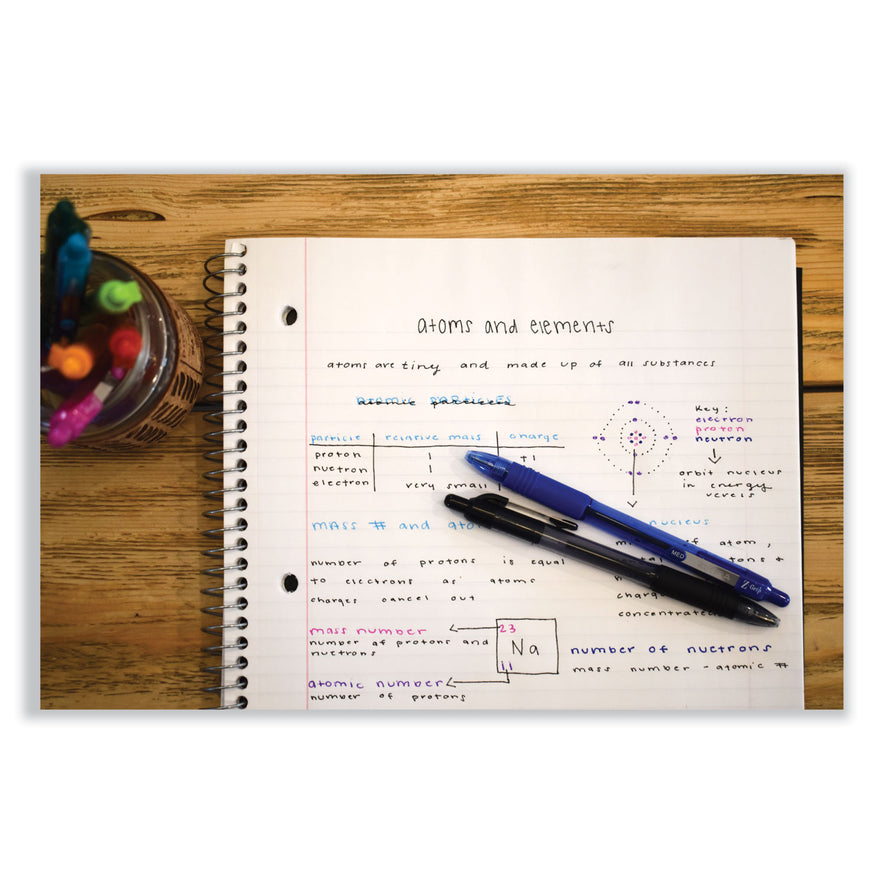 atoms and elements
atoms are tiny and made up of all substances
atomic particles
particle relative mass charge
proton 1 +1
nuetron 1
electron very small
Key:
electron
proton
neutron
orbit nucleus
in energy
verels
mass # and
nucleus
of atom,
number of protons is equal
to electrons as atoms
charges cancel out
concentrated
mass number
number of protons and
nuetrons
23
Na
11
atomic number
number of protons
number of nuetrons
mass number - atomic #
MED
Z Grip